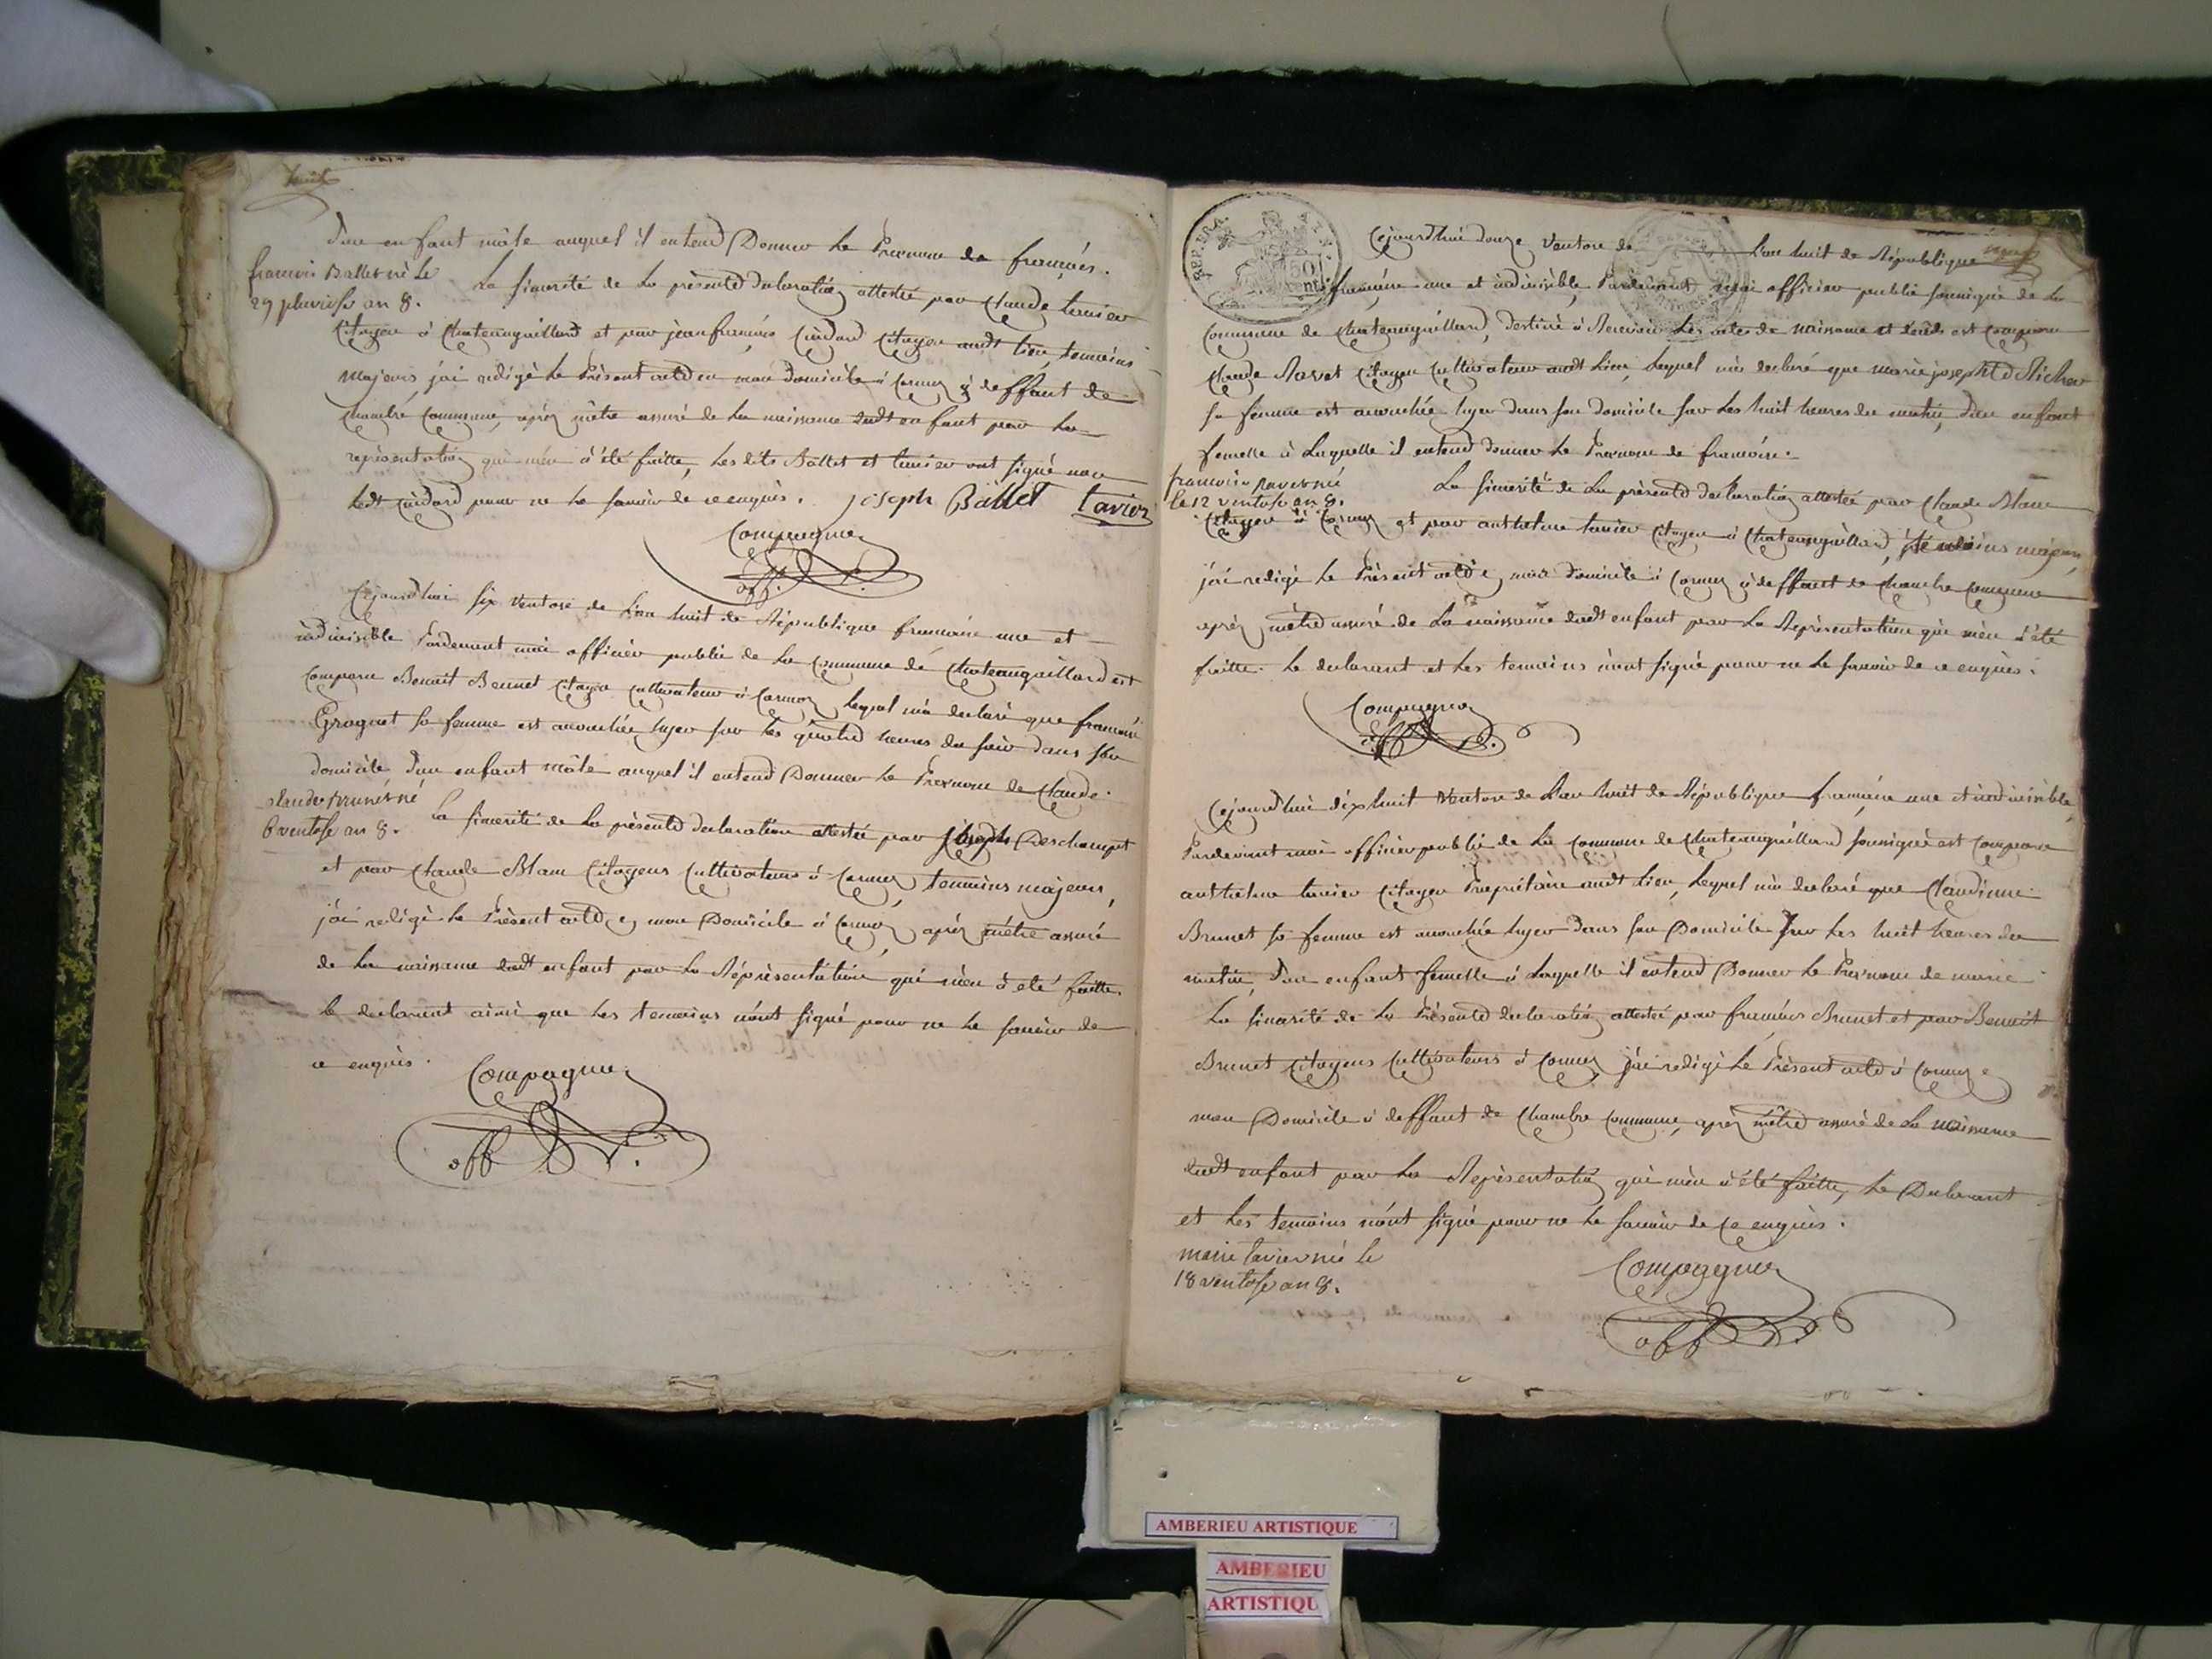 huit
d'un enfant mâle auquel il entend Donner le Prenom de françois.
francois Ballet né le
29 pluviose an 8.
La sincerité de la présente declaration attestée par Claude tavier
Citoyen à Chateaugaillard et par jean françois Cuidard Citoyen audt lieu, temoins
majeurs j'ai redigé le Présent acte en mon domicile à Cormoz à deffaut de
chambre Commune, après m'être assuré de la naissance dudt enfant par la
représentation qui m'en à été faitte, les dits Ballet et tavier ont signé non
ledt Cuidard pour ne le savoir de ce enquis. joseph Ballet tavier
Compagnon
off. p.
Cejourd'hui six Ventose de L'an huit de République francaise une et
indivisible Pardevant moi officier public de la Commune de Chateaugaillard est
comparu Benoit Brunet Citoyen Cultivateur à Cormoz lequel m'a declaré que francoise
Grognet sa femme est accouchée hyer sur les quatre heures du soir dans son
domicile d'un enfant mâle auquel il entend Donner le Prenom de Claude.
claude brunet né
6 ventose an 8.
La sincerité de la présente declaration attestée par joseph Deschamps
et par Claude Blanc Citoyens Cultivateurs à Cormoz, temoins majeurs,
j'ai redigé le Présent acte en mon Domicile à Cormoz, après m'être assuré
de la naissance dudt enfant par la Réprésentation qui m'en à été faitte.
le declarant ainsi que les temoins n'ont signé pour ne le savoir de
ce enquis.
Compagnon
off. p.
REP. FRA.
50
Cejourd'hui douze Ventose de L'an huit de République
neuf
francaise une et indivisible, Pardevant moi officier public soussigné de la
Commune de Chateaugaillard, destiné à Recevoir les actes de naissance et décès est comparu
Claude Ravet Citoyen Cultivateur audt Lieu, Lequel m'a declaré que marie josephte Richer
sa femme est accouchée hyer dans son domicile sur les huit heures du matin, d'un enfant
femelle à Laquelle il entend donner le Prenom de francoise.
francoise ravet né
le 12 ventose an 8.
La sincerité de la présente declaration attestée par Claude Blanc
Citoyen à Cormoz et par anthelme tavier Citoyen à Chateaugaillard, temoins majeurs,
j'ai redigé le Présent acte en mon domicile à Cormoz à deffaut de chambre commune
après m'être assuré de La naissance dudt enfant par La Représentation qui m'en à été
faitte. le declarant et les temoins n'ont signé pour ne le savoir de ce enquis.
Compagnon
off. p.
Cejourd'hui dix huit Ventose de L'an huit de République francaise une et indivisible,
Pardevant moi officier public de la Commune de Chateaugaillard soussigné est comparu
anthelme tavier Citoyen Propriétaire audt Lieu, Lequel m'a declaré que Claudinne
Brunet sa femme est accouchée hyer dans son Domicile sur les huit heures du
matin, d'un enfant femelle à Laquelle il entend Donner le Prenom de marie
La sincerité de la Présente declaration attestée par françois Brunet et par Benoit
Brunet Citoyens Cultivateurs à Cormoz, j'ai redigé le Présent acte à Cormoz en
mon Domicile à deffaut de Chambre Commune, après m'être assuré de La naissance
dudt enfant par La Représentation qui m'en à été faitte, le Declarant
et les temoins n'ont signé pour ne le savoir de ce enquis.
marie tavier né le
18 ventose an 8.
Compagnon
off. p.
AMBERIEU ARTISTIQUE
AMBERIEU
ARTISTIQU